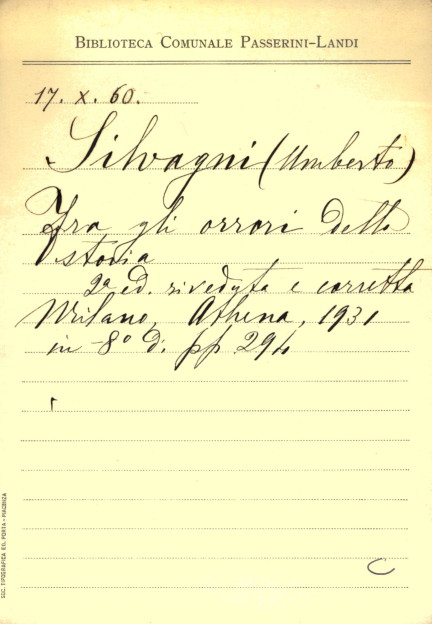 BIBLIOTECA COMUNALE PASSERINI-LANDI
17. X. 60.
Silvagni (Umberto)
Fra gli orrori della
storia
2a ed. riveduta e corretta
Milano, Athena, 1931
in-8º di pp 294
SOC. TIPOGRAFICA ED. PORTA - PIACENZA
C